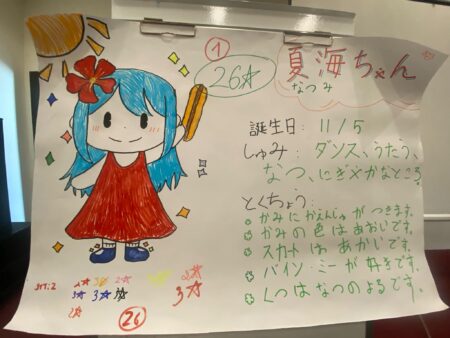 ①
26☆
夏海ちゃん
なつみ
誕生日: 11/5
しゅみ: ダンス、うたう、
なつ、にぎやかなところ
とくちょう:
かみにかえんじゅがつきます。
かみの色はあおいです。
スカートはあかいです。
バイン・ミーが好きです。
くつはなつのよるです。
1☆ 3☆ 2☆
3☆ 3☆ 1☆
3☆
26